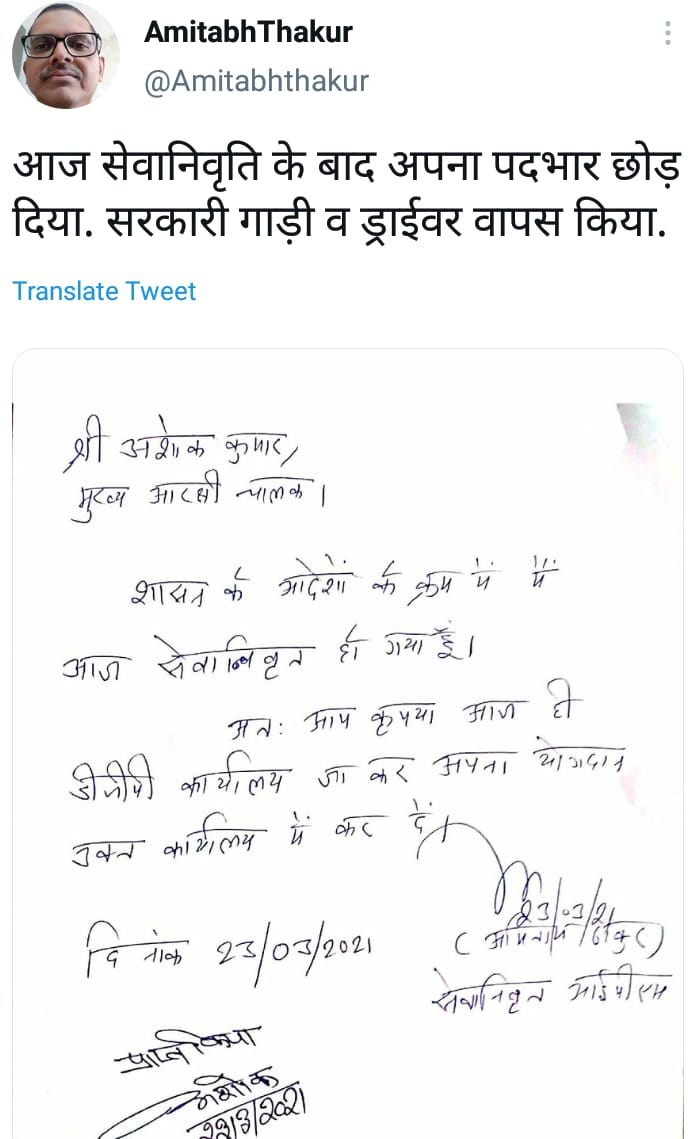 AmitabhThakur
@Amitabhthakur
आज सेवानिवृति के बाद अपना पदभार छोड़
दिया. सरकारी गाड़ी व ड्राईवर वापस किया.
Translate Tweet
श्री अशोक कुमार,
मुख्य आरक्षी चालक।
शासन के आदेशों के क्रम में मैं
आज सेवानिवृत हो गया हूँ।
अतः आप कृपया आज ही
डीजीपी कार्यालय जा कर अपना योगदान
उक्त कार्यालय में कर दें।
23/03/21
(अमिताभ ठाकुर)
दिनांक 23/03/2021
सेवानिवृत आईपीएस
प्राप्त किया
अशोक
23/3/2021